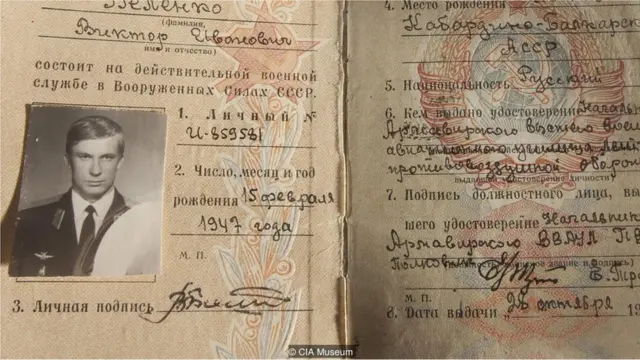 (фамилия,
Виктор Иванович
имя и отчество)
состоит на действительной военной
службе в Вооруженных Силах СССР.
1. Личный №
И-859581
2. Число, месяц и год
рождения 15 февраля
1947 года
М. П.
3. Личная подпись
4. Место рождения
Кабардино-Балкарс
АССР
5. Национальность Русский
6. Кем выдано удостоверение Начальн
Армавирского
противовоздушной оборон
7. Подпись должностного лица, вы
шего удостоверение Начальник
Армавирского ВВАУЛ ПВ
Полковник
М. П.
8. Дата выдачи „26 октября 19
© CIA Museum